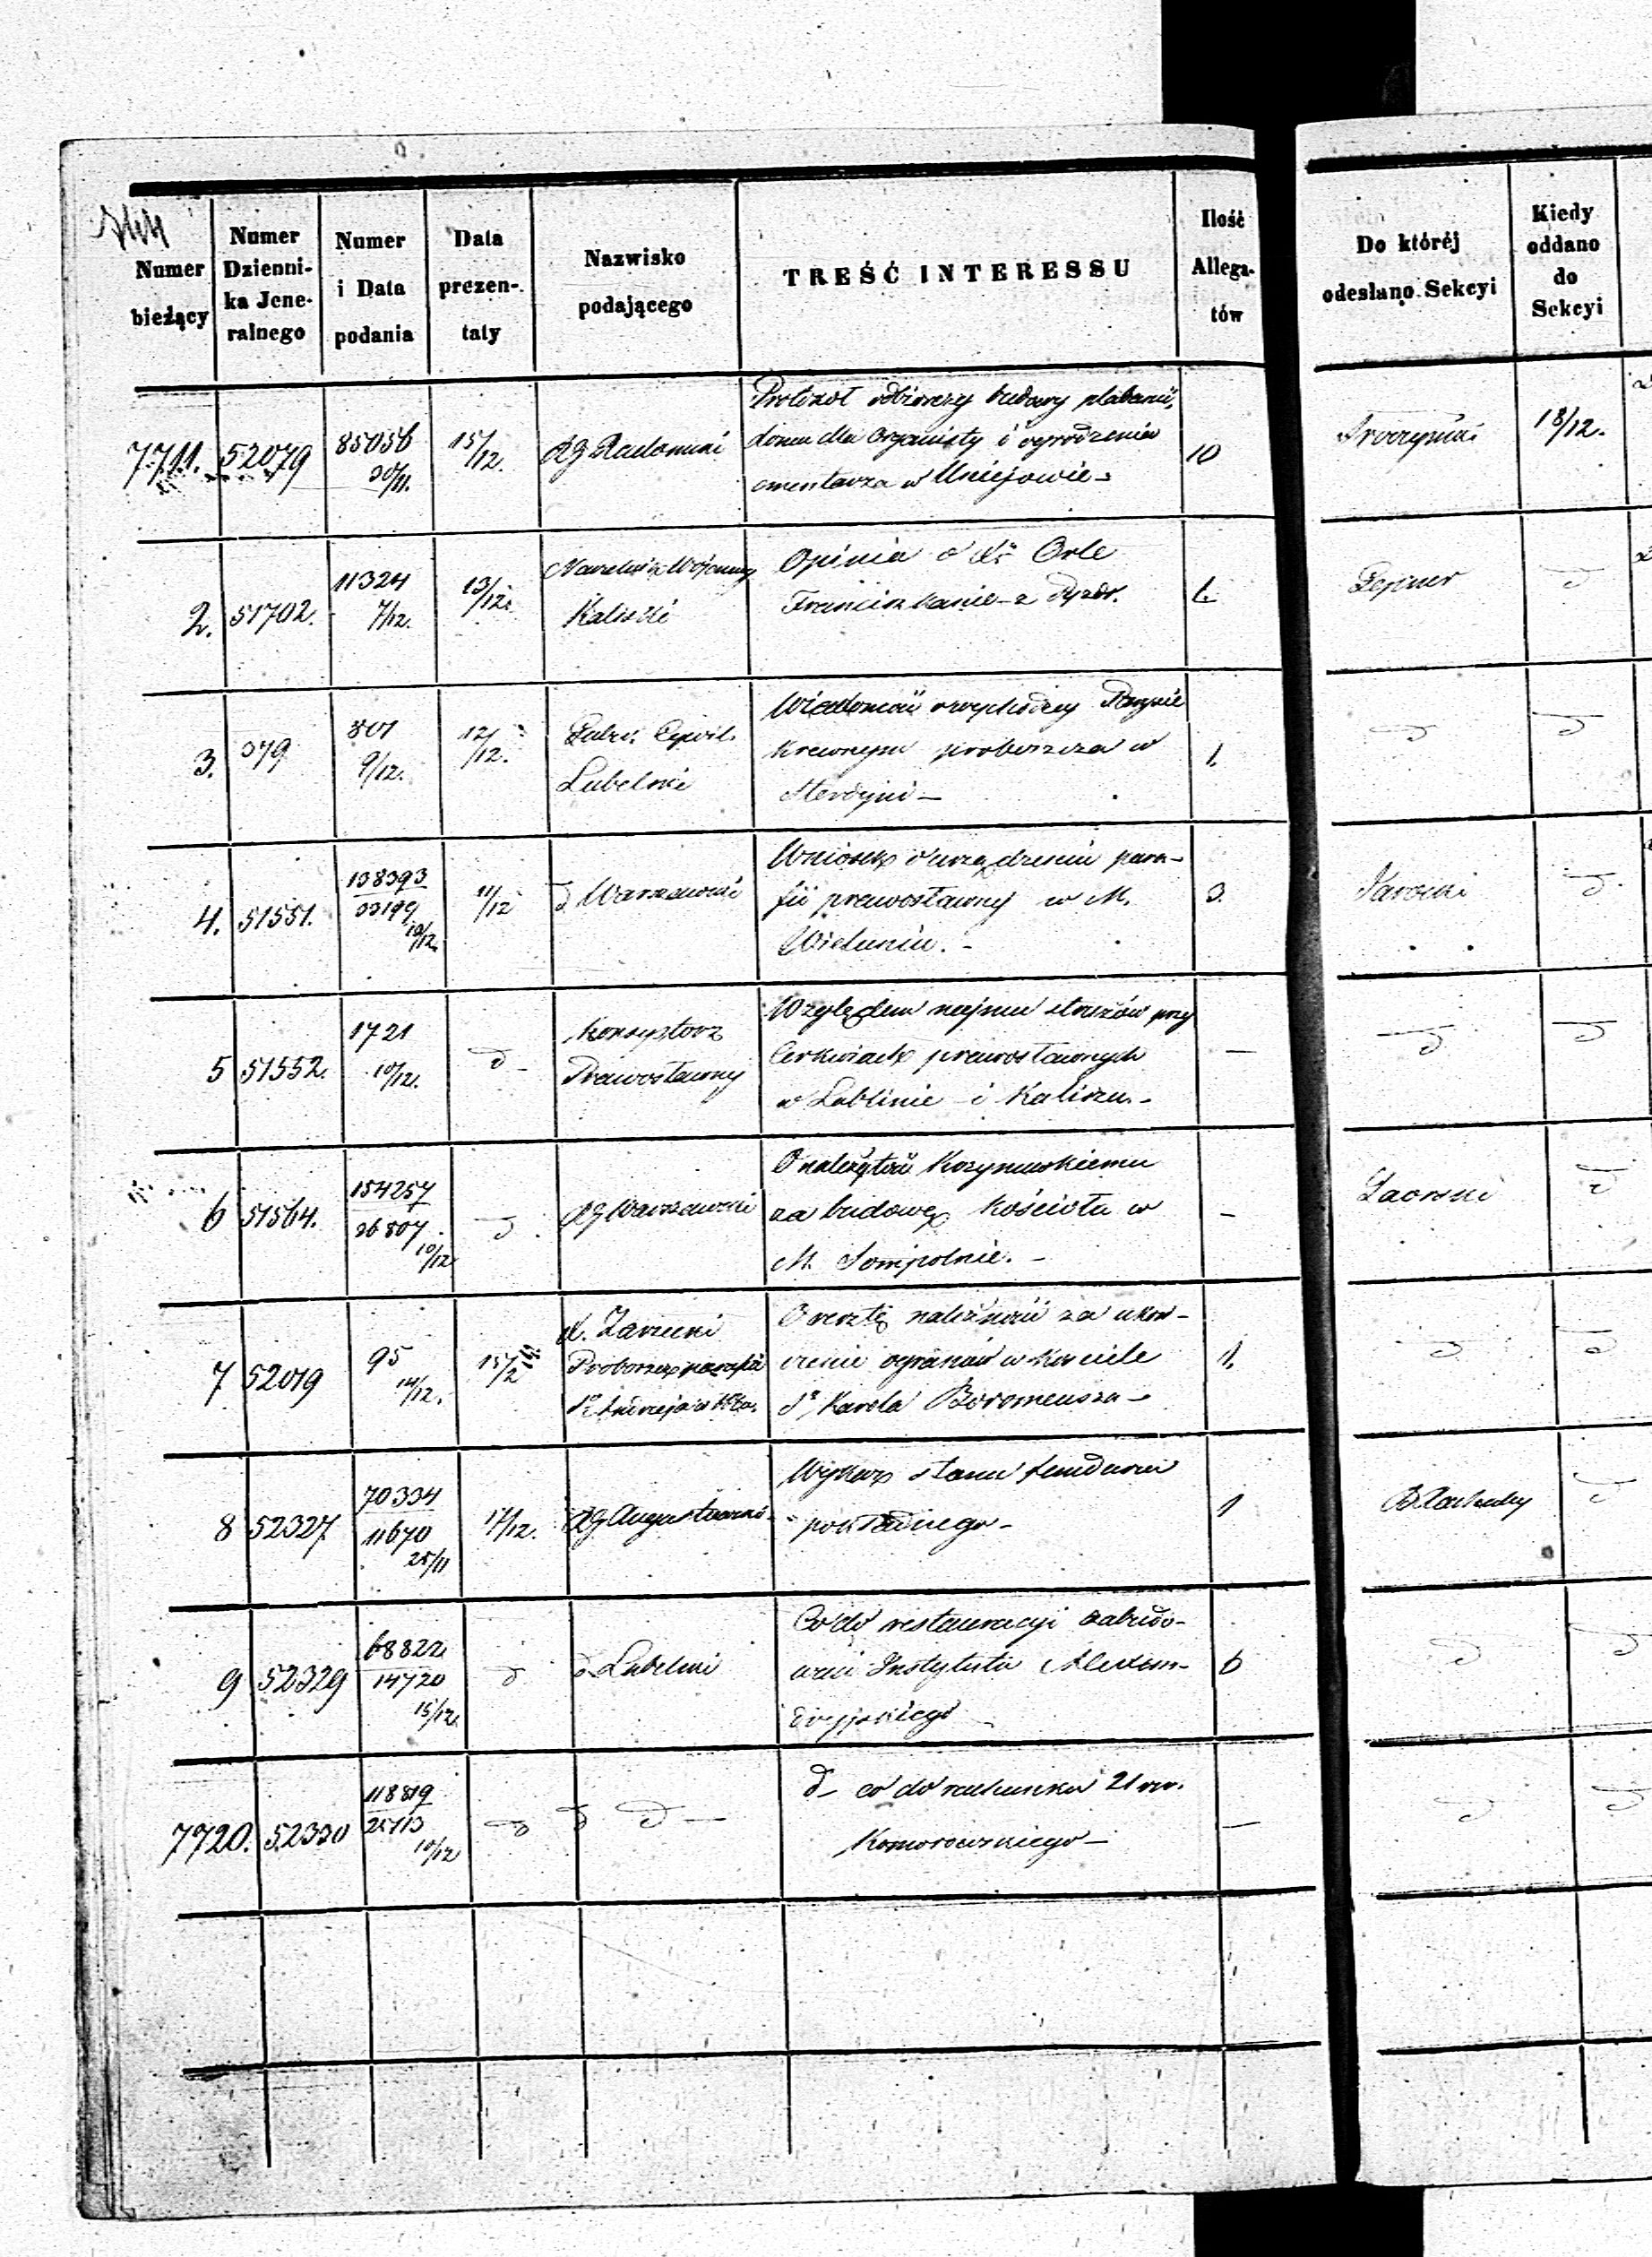 Numer bieżący
Numer Dzienni-
ka Jene-
ralnego
Numer
i Data
podania
Data
prezen-
taty
Nazwisko
podającego
TREŚĆ INTERESSU
Ilość
Allega-
tów
Do któréj
odesłano Sekcyi
Kiedy
oddano
do
Sekcyi
7711. 52079 85056 30/11. 15/12. RG Radomski
Protokół odbiorczy budowy plebanii,
domu dla Organisty i ogrodzenia
cmentarza w Uniejowie –
10
18/12.
2. 51702. 11324 7/12. 13/12. Naczelnik Wojenny
Kaliski
Opinia o Xs Orle
Franciszkanie z Pyzdr.
d
3. 379 801 9/12. 12/12. Gubr. Cywil.
Lubelski
Wiadomość
krewnym proboszcza w
Sterdyni –
1.
d d
4. 51551. 138393 33199 10/12. 11/12 d Warszawski
Wniosek o urządzeniu para-
fii prawosławnej w M.
Wieluniu. –
3.
d
5 51552. 1721 10/12. d – Konsystorz
Prawosławny
Względem najmu stróżów przy
Cerkwiach prawosławnych
w Lublinie i Kaliszu. –
–
d d
6 51564. 154257 26807 10/12 d RG Warszawski
O należytość
za budowę Kościoła w
M. Sompolnie. –
–
d
7 52019 95 14/12. 15/12 X. Zarzecki
Proboszcz parafii
O resztę należności za ukoń-
czenie organów w Kościele
Sgo Karola Boromeusza –
1.
d d
8 52327 70334 11670 25/11 17/12. RG Augustowski
Wykaz stanu funduszu
pokładnego –
1
d
9 52329 68822 14720 15/12. d d Lubelski
Co do restauracyi zabudo-
wań Instytutu Alexan-
dryjskiego –
6
d d
7720. 52330 118819 25713 10/12 d d d –
d – co do rachunku
Komorowskiego –
–
d d